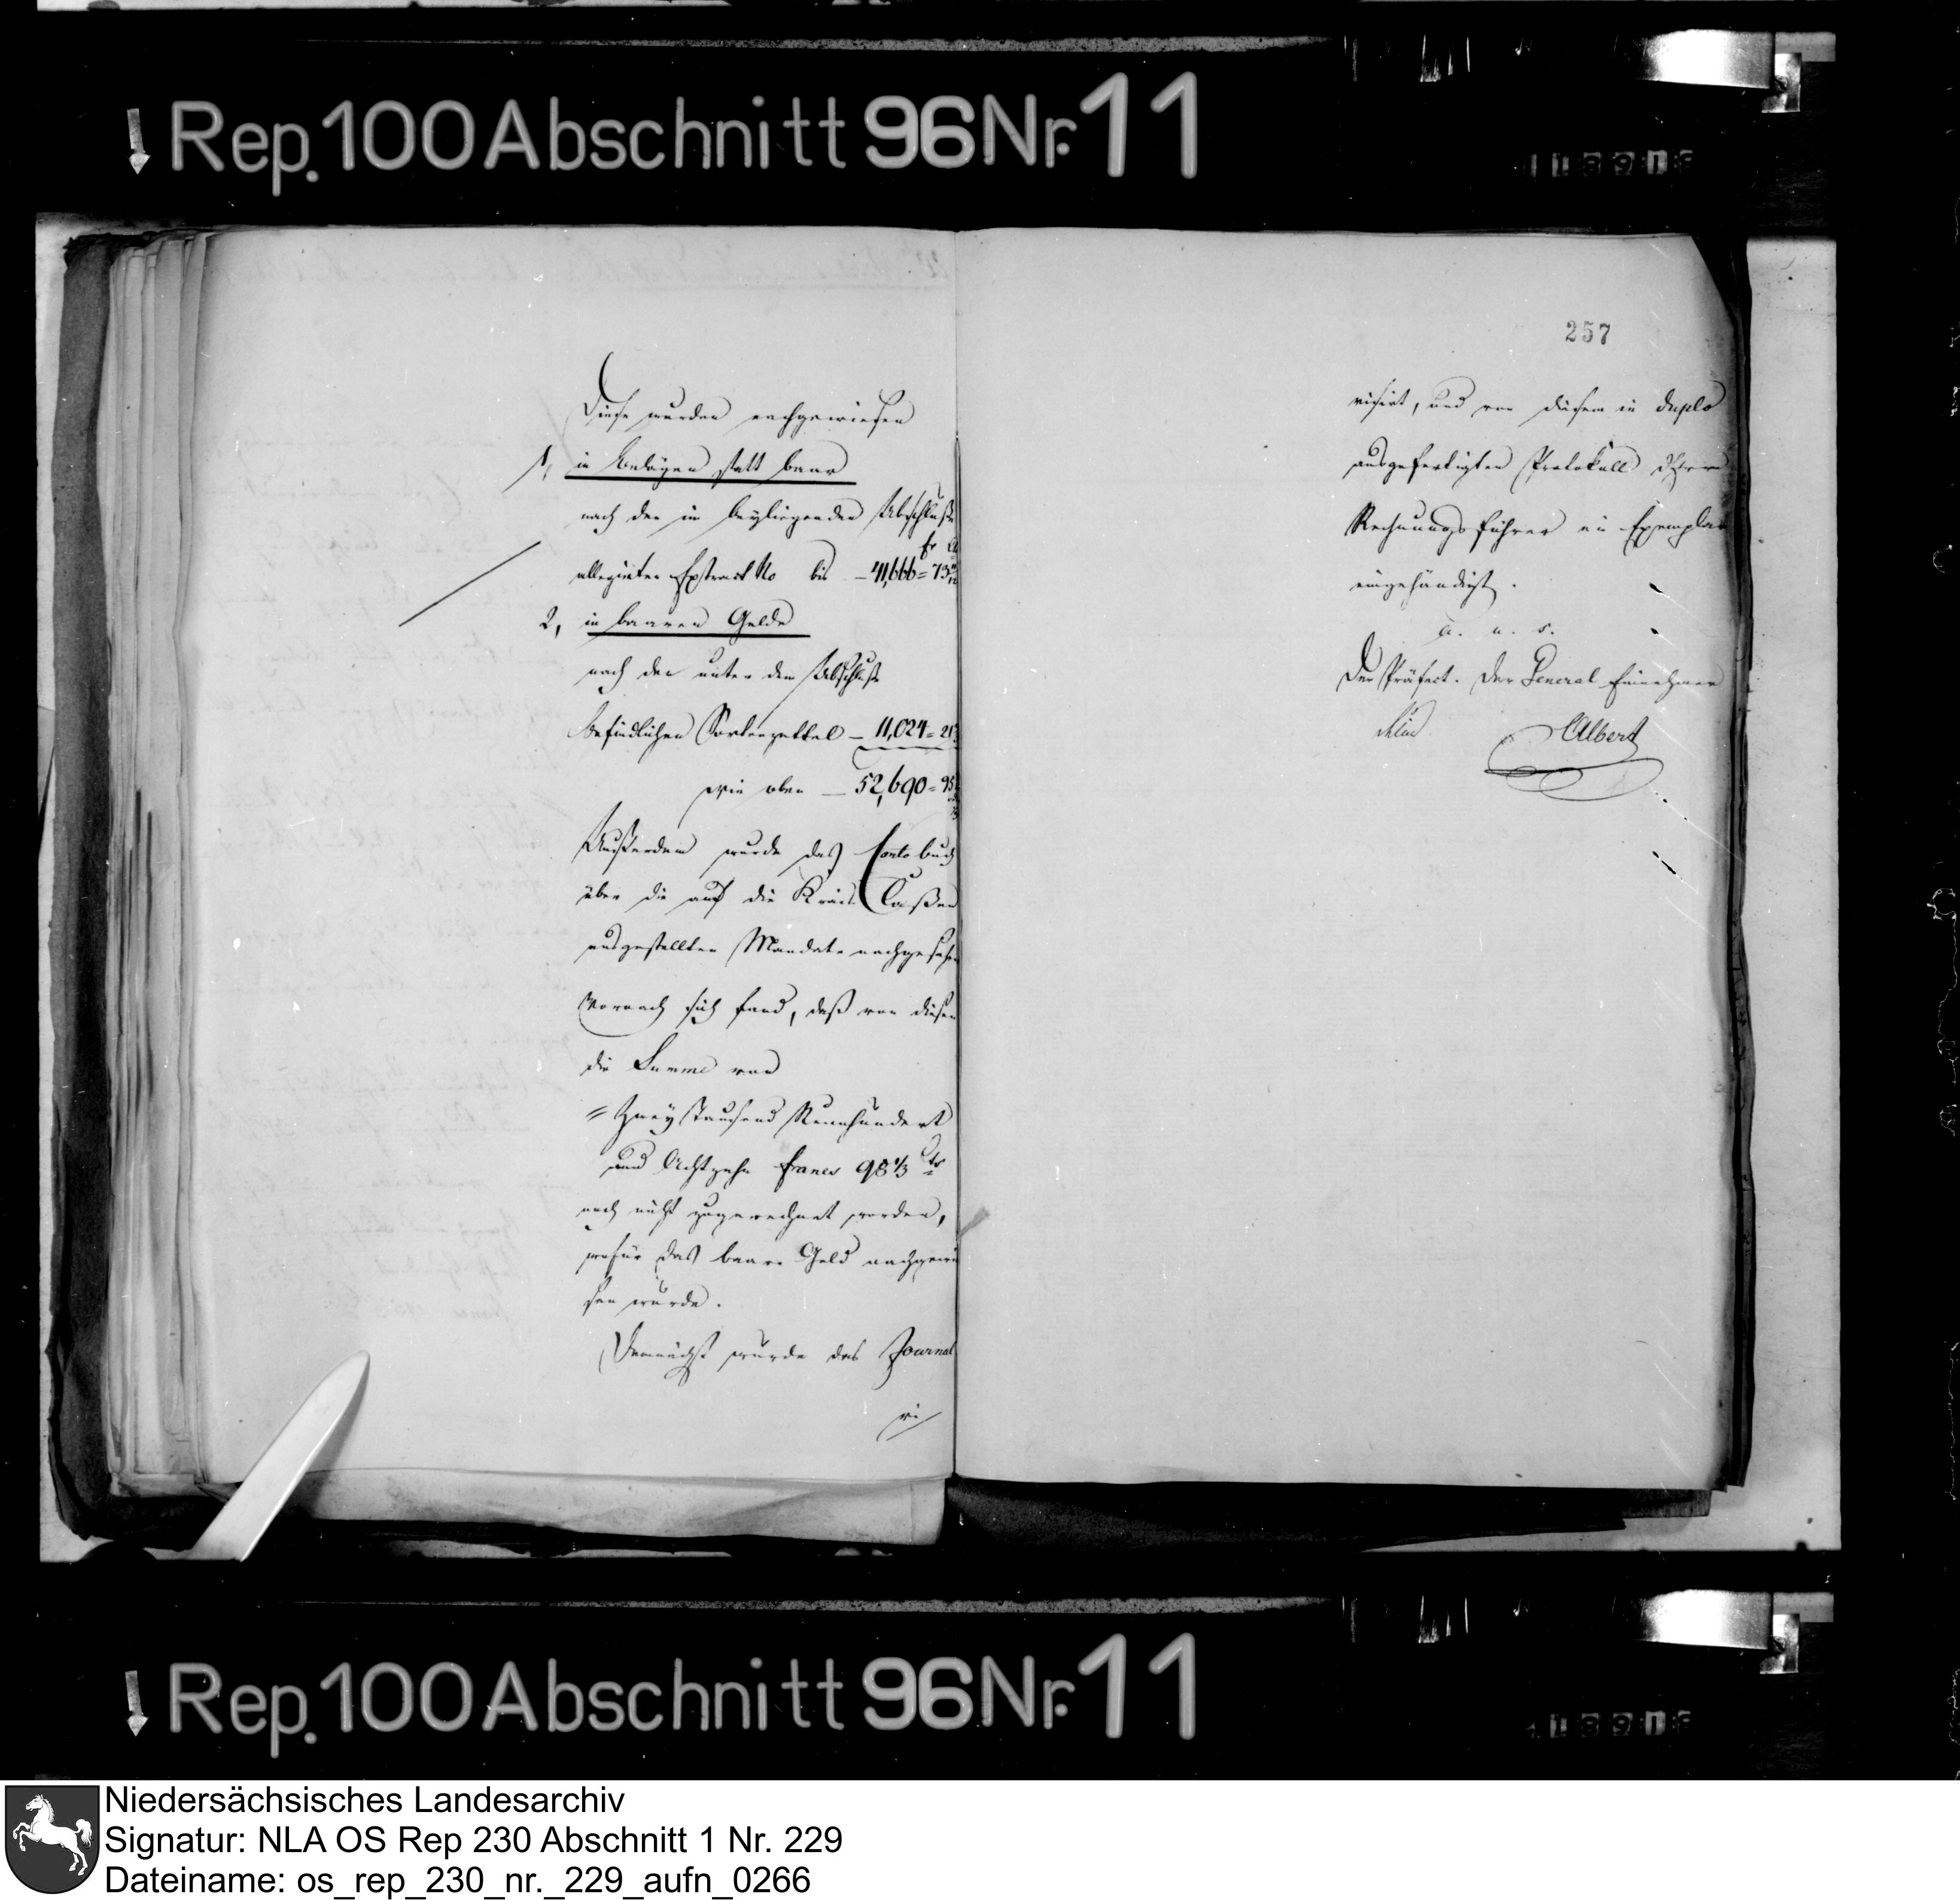 Rep. 100 Abschnitt 96 Nr. 11
11891
Diese wurden nachgewiesen
1, in Belägen statt baar
nach den im beyliegenden Abschluße
fr. Ct.
allegirten Extract No bis – 41,666 = 73
2, in baaren Gelde
nach den unter dem Abschluße
befindlichen Sortenzettel – 11,024 = 21
wie oben — 52,690 = 95
Außerdem wurde das Contobuch
über die auf die Kreis Caßen
ausgestellten Mandate nachgesehen
Wornach sich fand, daß von diesen
die Summe von
= Zwey Tausend Neunhundert
und Achtzehn Francs 98 1/3 Cts
noch nicht zugerechnet worden,
wofür das baare Geld nachgewie
sen wurde.
Demnächst wurde das Journal
vi
257
visirt, und von diesem in duplo
ausgefertigten Protokoll Herrn
Rechnungsführer ein Exemplar
eingehändigt.
a. u. s.
Der Präfect. Der General Einnehmer
Albert
Rep. 100 Abschnitt 96 Nr. 11
1891
Niedersächsisches Landesarchiv
Signatur: NLA OS Rep 230 Abschnitt 1 Nr. 229
Dateiname: os_rep_230_nr._229_aufn_0266